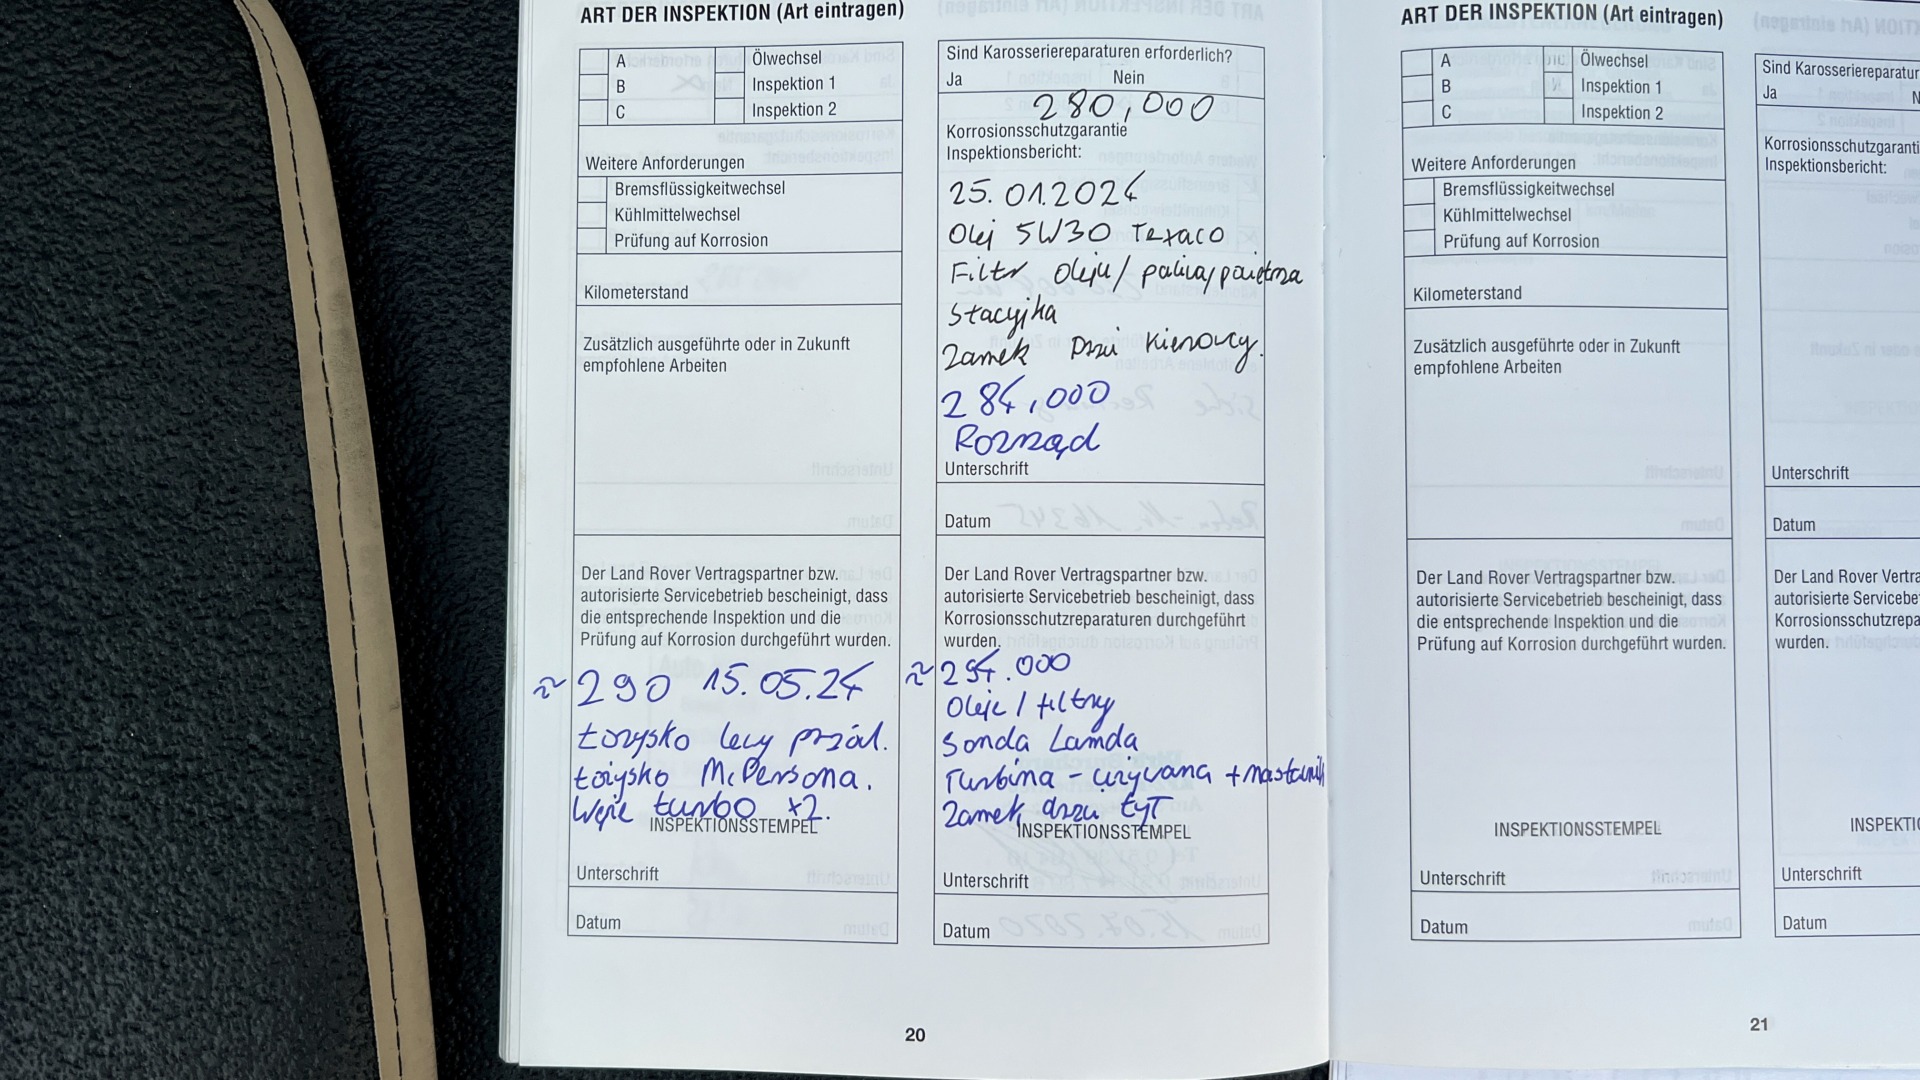 ART DER INSPEKTION (Art eintragen)
A
Ölwechsel
B
Inspektion 1
C
Inspektion 2
Weitere Anforderungen
Bremsflüssigkeitwechsel
Kühlmittelwechsel
Prüfung auf Korrosion
Kilometerstand
Zusätzlich ausgeführte oder in Zukunft
empfohlene Arbeiten
Der Land Rover Vertragspartner bzw.
autorisierte Servicebetrieb bescheinigt, dass
die entsprechende Inspektion und die
Prüfung auf Korrosion durchgeführt wurden.
≈ 290 15.05.24
Łożysko lewy przód.
Łożysko McPersona.
Węże turbo x2.
INSPEKTIONSSTEMPEL
Unterschrift
Datum
Sind Karosseriereparaturen erforderlich?
Ja Nein
280,000
Korrosionsschutzgarantie
Inspektionsbericht:
25.01.2024
Olej 5W30 Texaco
Filtr oleju/paliwa/powietrza
Stacyjka
Zamek Drzwi Kierowcy.
284,000
Rozrząd
Unterschrift
Datum
Der Land Rover Vertragspartner bzw.
autorisierte Servicebetrieb bescheinigt, dass
Korrosionsschutzreparaturen durchgeführt
wurden.
≈ 294.000
Oleje / filtry
Sonda Lamda
Turbina - używana + nastawnik
Zamek drzwi tył
INSPEKTIONSSTEMPEL
Unterschrift
Datum
20
ART DER INSPEKTION (Art eintragen)
A
Ölwechsel
B
Inspektion 1
C
Inspektion 2
Weitere Anforderungen
Bremsflüssigkeitwechsel
Kühlmittelwechsel
Prüfung auf Korrosion
Kilometerstand
Zusätzlich ausgeführte oder in Zukunft
empfohlene Arbeiten
Der Land Rover Vertragspartner bzw.
autorisierte Servicebetrieb bescheinigt, dass
die entsprechende Inspektion und die
Prüfung auf Korrosion durchgeführt wurden.
INSPEKTIONSSTEMPEL
Unterschrift
Datum
Sind Karosseriereparatur
Ja N
Korrosionsschutzgaranti
Inspektionsbericht:
Unterschrift
Datum
Der Land Rover Vertra
autorisierte Servicebe
Korrosionsschutzrepa
wurden.
INSPEKTIO
Unterschrift
Datum
21